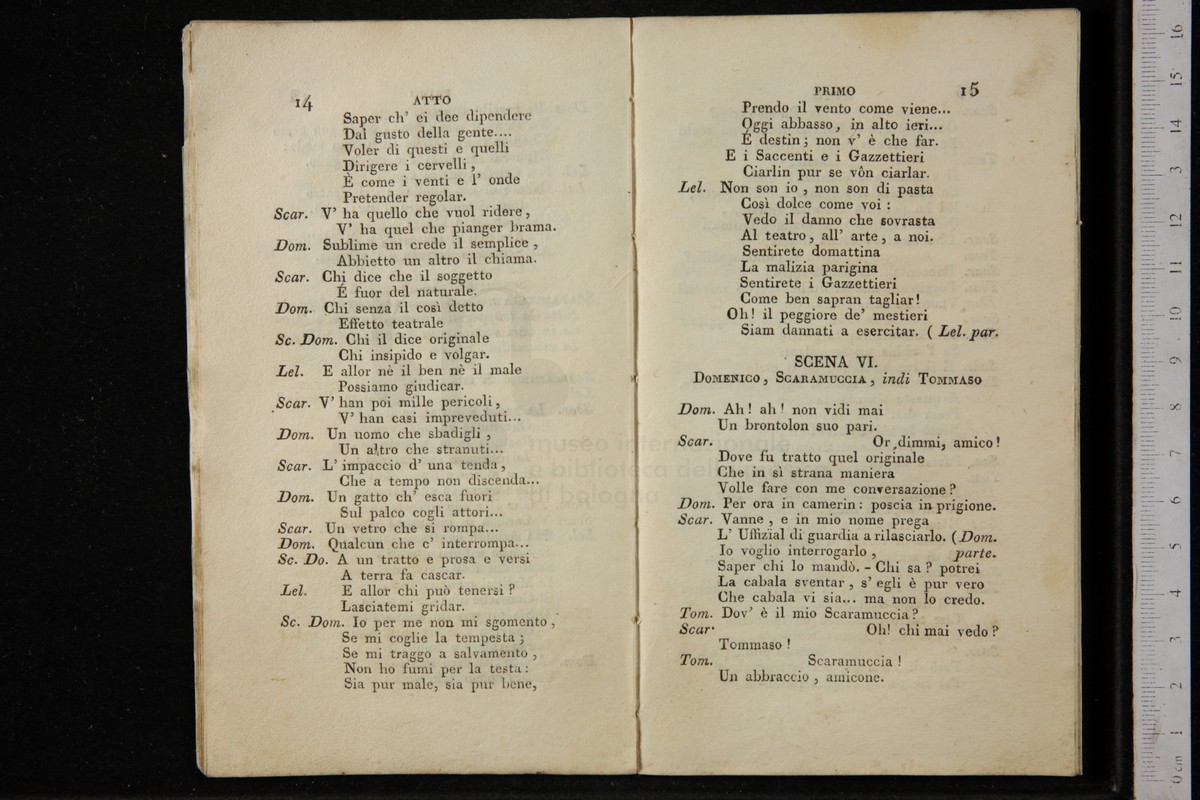 14 ATTO
Saper ch' ei dee dipendere
Dal gusto della gente....
Voler di questi e quelli
Dirigere i cervelli,
È come i venti e l' onde
Pretender regolar.
Scar. V' ha quello che vuol ridere,
V' ha quel che pianger brama.
Dom. Sublime un crede il semplice,
Abbietto un altro il chiama.
Scar. Chi dice che il soggetto
É fuor del naturale.
Dom. Chi senza il così detto
Effetto teatrale
Sc. Dom. Chi il dice originale
Chi insipido e volgar.
Lel. E allor nè il ben nè il male
Possiamo giudicar.
Scar. V' han poi mille pericoli,
V' han casi impreveduti...
Dom. Un uomo che sbadigli,
Un altro che stranuti...
Scar. L' impaccio d' una tenda,
Che a tempo non discenda...
Dom. Un gatto ch' esca fuori
Sul palco cogli attori...
Scar. Un vetro che si rompa...
Dom. Qualcun che c' interrompa...
Sc. Do. A un tratto e prosa e versi
A terra fa cascar.
Lel. E allor chi può tenersi?
Lasciatemi gridar.
Sc. Dom. Io per me non mi sgomento,
Se mi coglie la tempesta;
Se mi traggo a salvamento,
Non ho fumi per la testa:
Sia pur male, sia pur bene,
PRIMO 15
Prendo il vento come viene...
Oggi abbasso, in alto ieri...
É destin; non v' è che far.
E i Saccenti e i Gazzettieri
Ciarlin pur se vôn ciarlar.
Lel. Non son io, non son di pasta
Così dolce come voi:
Vedo il danno che sovrasta
Al teatro, all' arte, a noi.
Sentirete domattina
La malizia parigina
Sentirete i Gazzettieri
Come ben sapran tagliar!
Oh! il peggiore de' mestieri
Siam dannati a esercitar. (Lel. par.
SCENA VI.
DOMENICO, SCARAMUCCIA, indi TOMMASO
Dom. Ah! ah! non vidi mai
Un brontolon suo pari.
Scar. Or dimmi, amico!
Dove fu tratto quel originale
Che in sì strana maniera
Volle fare con me conversazione?
Dom. Per ora in camerin: poscia in prigione.
Scar. Vanne, e in mio nome prega
L' Uffizial di guardia a rilasciarlo. (Dom.
Io voglio interrogarlo, parte.
Saper chi lo mandò. - Chi sa? potrei
La cabala sventar, s' egli è pur vero
Che cabala vi sia... ma non lo credo.
Tom. Dov' è il mio Scaramuccia?
Scar. Oh! chi mai vedo?
Tommaso!
Tom. Scaramuccia!
Un abbraccio, amicone.
museo internazionale
e biblioteca della
di bologna
0 cm 1 2 3 4 5 6 7 8 9 10 11 12 13 14 15 16